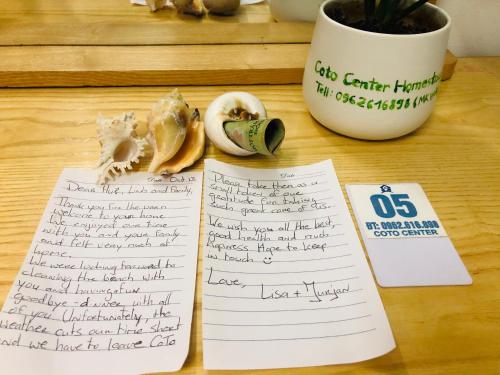 Coto Center Homestay
Tell: 0962616898 (MR
Sun Oct 12
Dear Huz, Linh and family,
Thank you for the warm
welcome to your home.
We enjoyed our time
with you and your family
and felt very much at
home.
We were looking forward to
cleaning the beach with
you and having a fun
goodbye-dinner with all
of you. Unfortunately, the
weather cuts our time short
and we have to leave CoTo
Please take them as a
small token of our
gratitude for taking
such great care of us.
We wish you all the best,
good health and much
happiness. Hope to keep
in touch ☺
Love,
Lisa +
05
ĐT: 0962.616.898
COTO CENTER